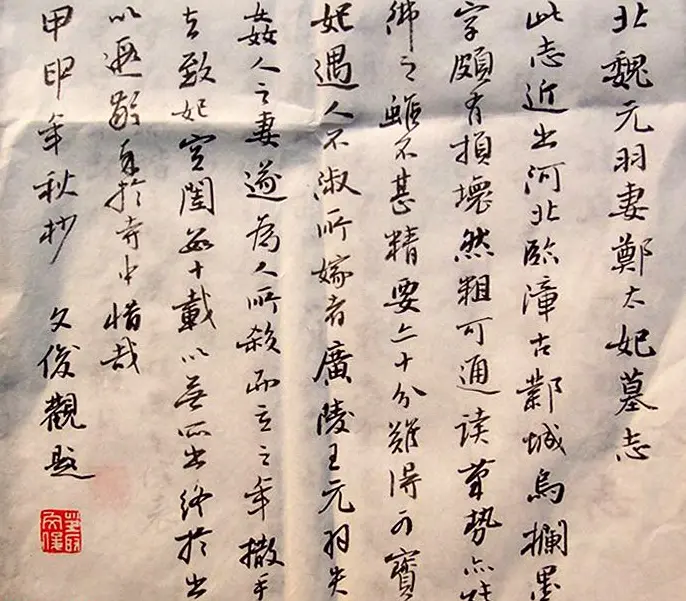 北魏元羽妻鄭太妃墓志
此志近出河北臨漳古鄴城烏欄墨
字頗有損壞然粗可通读筆勢亦
之雖不甚精要亦十分難得可寶
妃遇人不淑所嫁者廣陵王元羽失
姦人之妻遂為人所殺而立之年撒手
去致妃空閨十載以無所出終於出
以遯於寺中惜哉
甲申年秋杪 文俊觀題